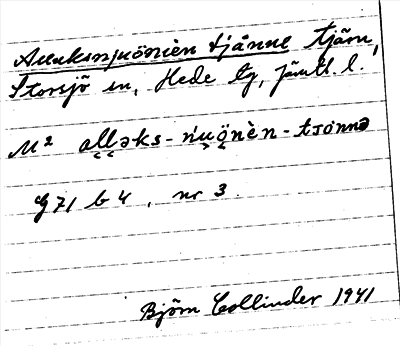 Alluksnjuönièn tjånne tjärn,
Storsjö sn, Hede tg, Jämtl. l.
M² allǝks-njuönèn-tsånnǝ
G 71 b 4, nr 3.
Björn Collinder 1941